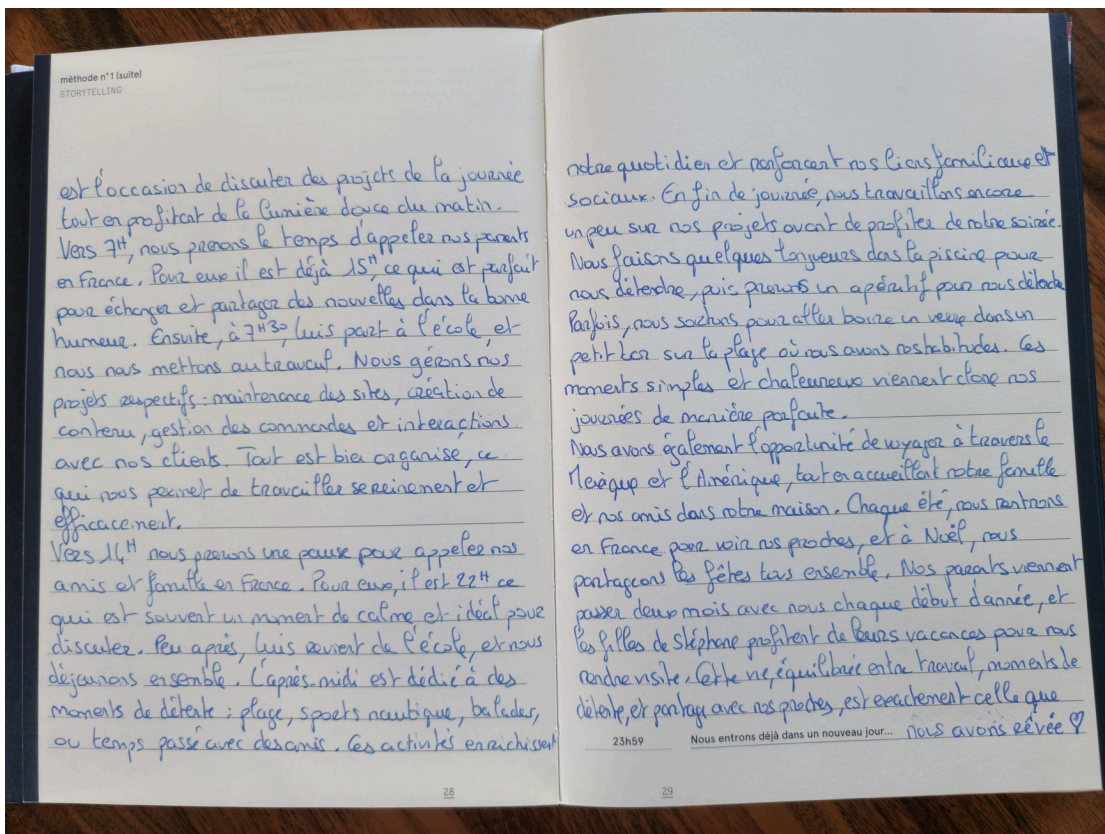 méthode n°1 (suite)
STORYTELLING
est l'occasion de discuter des projets de la journée
tout en profitant de la lumière douce du matin.
Vers 7H, nous prenons le temps d'appeler nos parents
en France. Pour eux il est déjà 15H, ce qui est parfait
pour échanger et partager des nouvelles dans la bonne
humeur. Ensuite, à 7H30, Luis part à l'école, et
nous nous mettons au travail. Nous gérons nos
projets respectifs : maintenance des sites, création de
contenu, gestion des commandes et interactions
avec nos clients. Tout est bien organisé, ce
qui nous permet de travailler sereinement et
efficacement.
Vers 14H nous prenons une pause pour appeler nos
amis et famille en France. Pour eux, il est 22H ce
qui est souvent un moment de calme et idéal pour
discuter. Peu après, Luis revient de l'école, et nous
déjeunons ensemble. L'après-midi est dédié à des
moments de détente : plage, sports nautique, balades,
ou temps passé avec des amis. Ces activités enrichissent
28
notre quotidien et renforcent nos liens familiaux et
sociaux. En fin de journée, nous travaillons encore
un peu sur nos projets avant de profiter de notre soirée.
Nous faisons quelques longueurs dans la piscine pour
nous détendre, puis prenons un apéritif pour nous détendre
Parfois, nous sortons pour aller boire un verre dans un
petit bar sur la plage où nous avons nos habitudes. Ces
moments simples et chaleureux viennent clore nos
journées de manière parfaite.
Nous avons également l'opportunité de voyager à travers le
Mexique et l'Amérique, tout en accueillant notre famille
et nos amis dans notre maison. Chaque été, nous rentrons
en France pour voir nos proches, et à Noël, nous
partageons les fêtes tous ensemble. Nos parents viennent
passer deux mois avec nous chaque début d'année, et
les filles de Stéphane profitent de leurs vacances pour nous
rendre visite. Cette vie, équilibrée entre travail, moments de
détente, et partage avec nos proches, est exactement celle que
23h59 Nous entrons déjà dans un nouveau jour... nous avons rêvée ♡
29